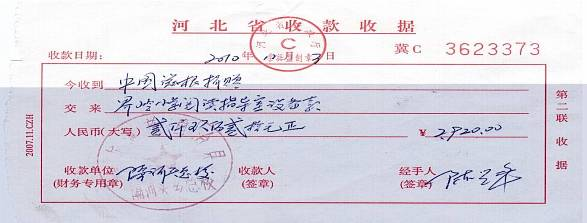 河北省收款收据
收款日期: 2010年 月 3日 冀C 3623373
今收到 中国滋根捐赠
交来 小学阅读指导室设备款
人民币(大写) 贰仟玖佰贰拾元正 ¥ 2920.00
收款单位: (财务专用章) 收款人 (签章) 经手人 (签章)
第二联收据
2007.11.CZH